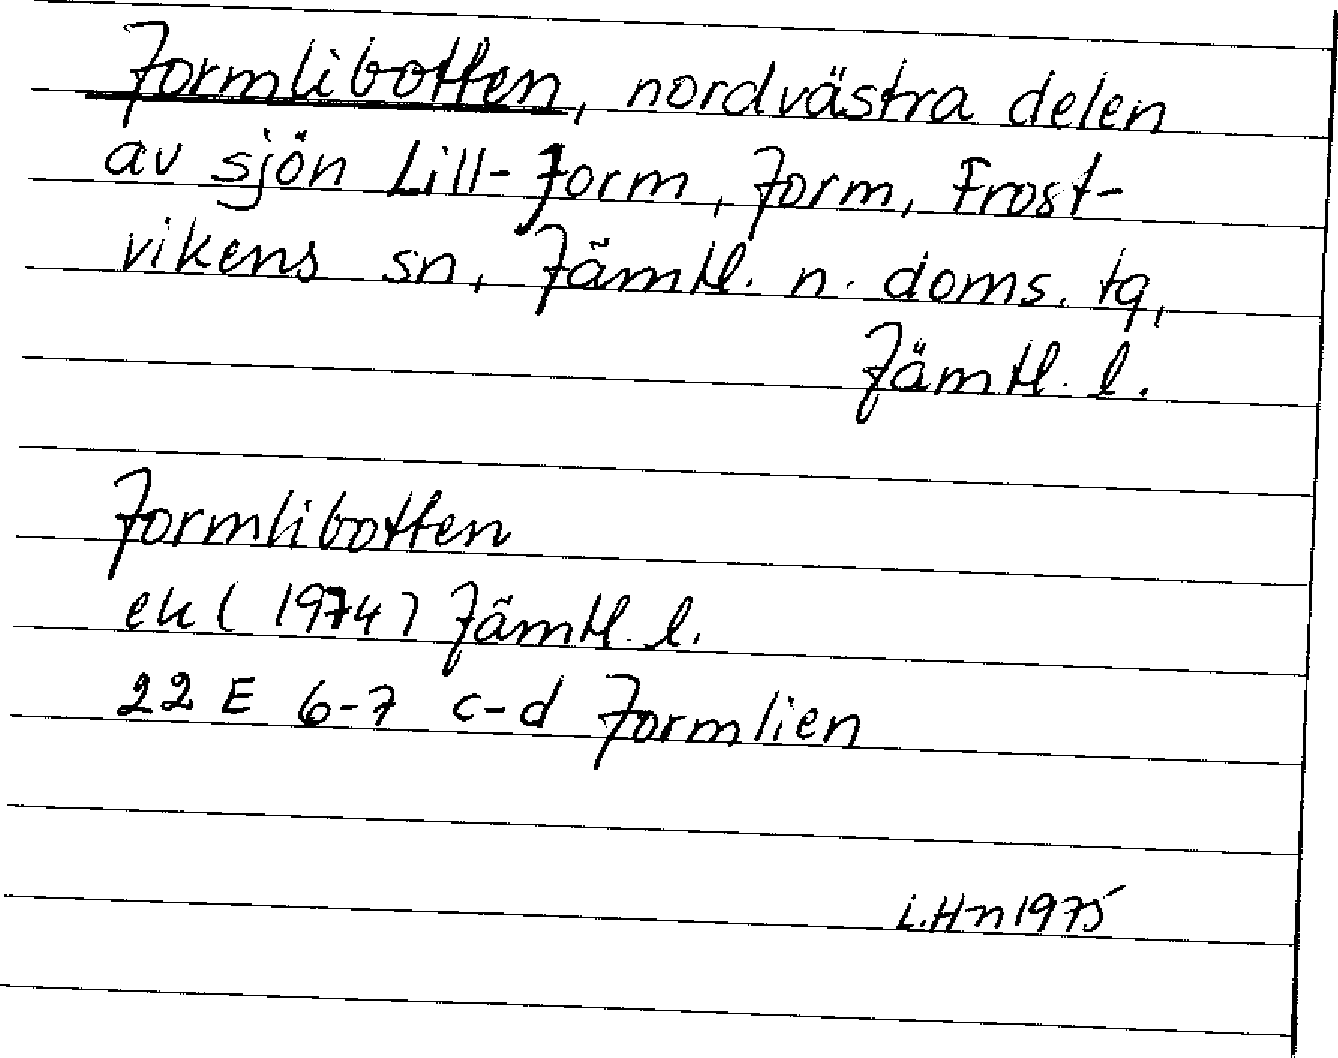 Jormlibotten, nordvästra delen
av sjön Lill-Jorm, Jorm, Frost-
vikens sn, Jämtl. n. doms. tq,
Jämtl. l.
Jormlibotten
ek (1974) Jämtl. l.
22 E 6-7 c-d Jormlien
L.Hn 1975